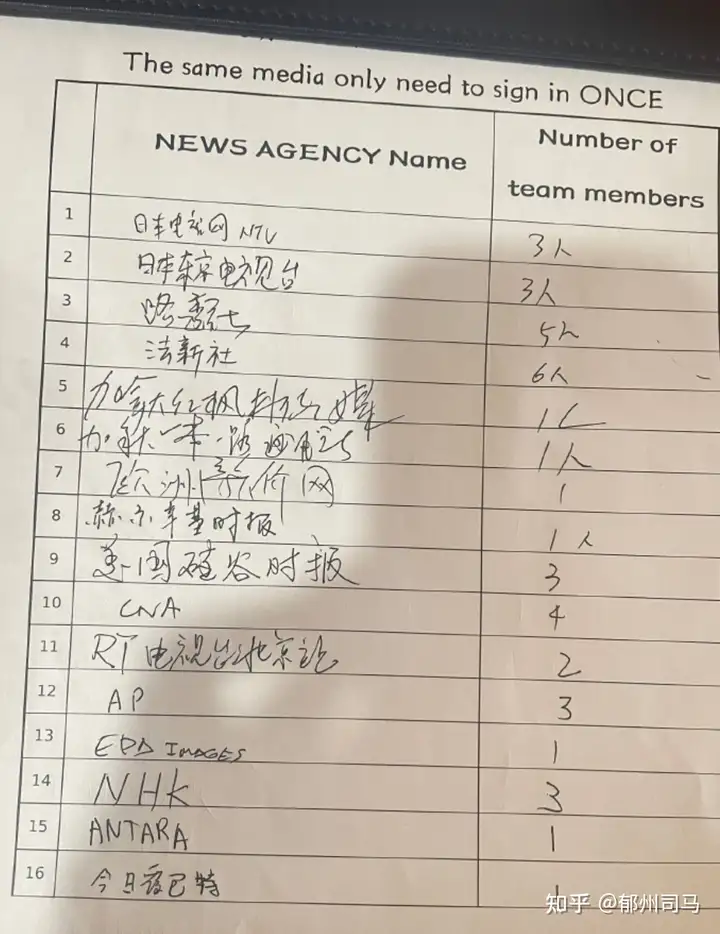 The same media only need to sign in ONCE
NEWS AGENCY Name Number of team members
1 日本电视网 NTV 3人
2 日本东京电视台 3人
3 路透社 5人
4 法新社 6人
5 加拿大红枫 1人
6 加拿大一带一路 1人
7 欧洲 网 1
8 赫尔辛基时报 1人
9 美国硅谷时报 3
10 CNA 4
11 RT电视台北京站 2
12 AP 3
13 EPA IMAGES 1
14 NHK 3
15 ANTARA 1
16 今日 巴特 1
知乎 @郁州司马